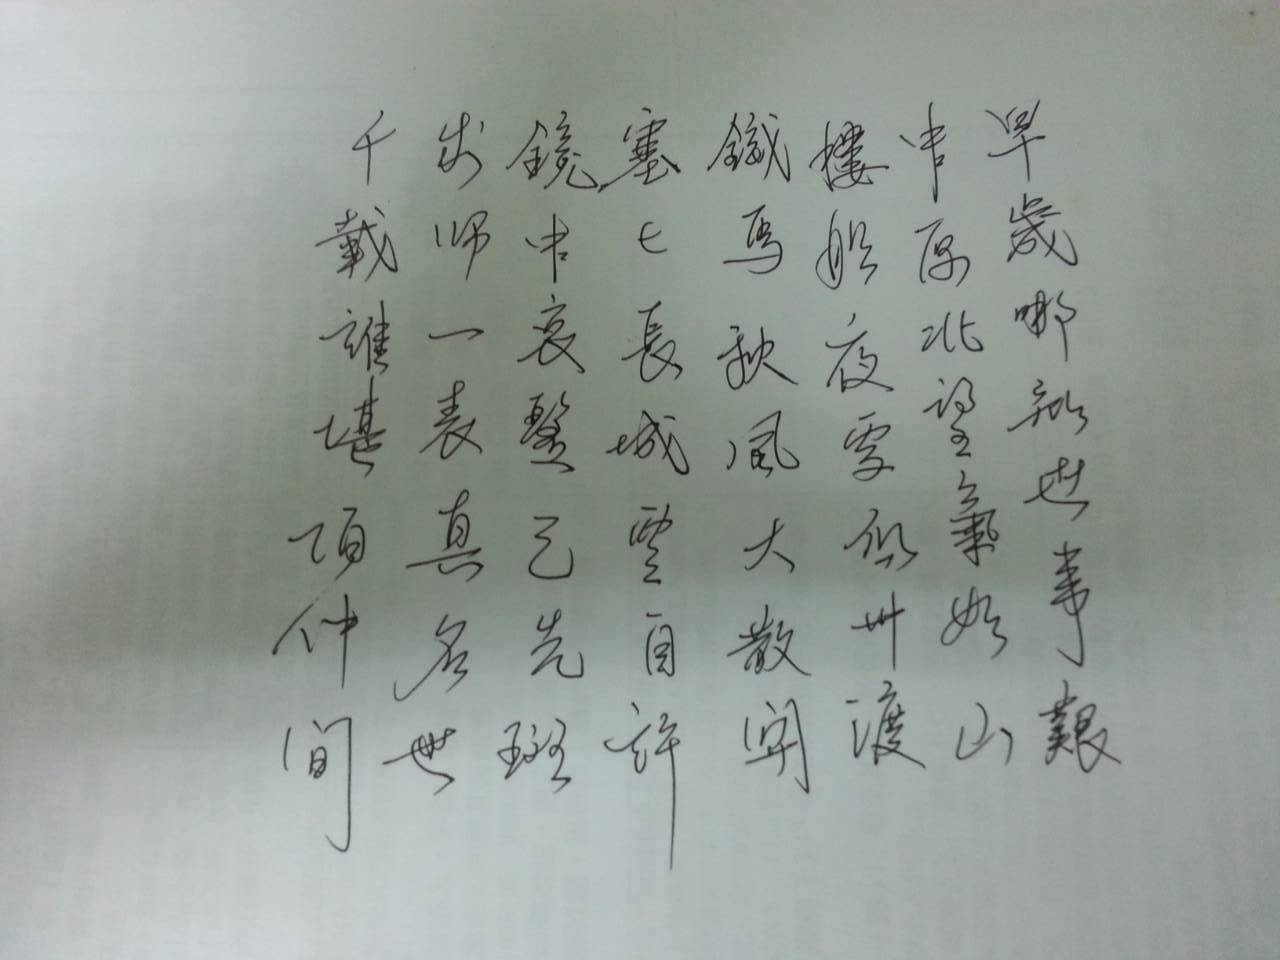 早歲哪知世事艱
中原北望氣如山
樓船夜雪瓜州渡
鐵馬秋風大散關
塞上長城空自許
鏡中衰鬢已先斑
出师一表真名世
千載誰堪伯仲間